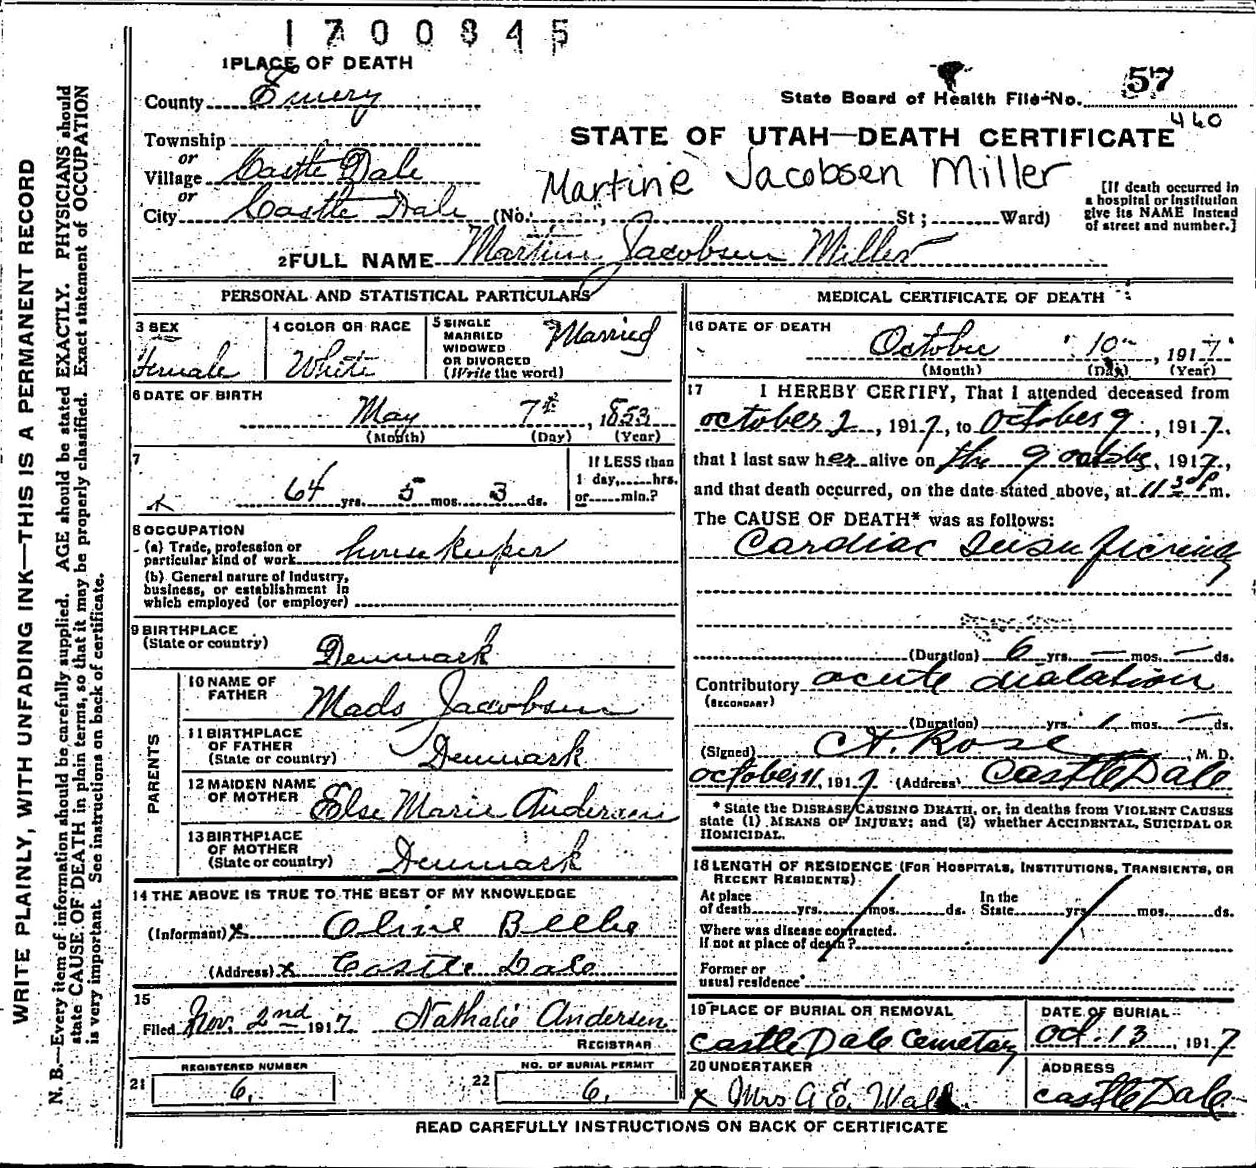 1700845
1 PLACE OF DEATH
County Emery
State Board of Health File No. 57
460
STATE OF UTAH—DEATH CERTIFICATE
Township
or
Village Castle Dale
or
City Castle Dale (No. , St; Ward)
Martine Jacobsen Miller
[If death occurred in
a hospital or institution
give its NAME instead
of street and number.]
2 FULL NAME Martine Jacobsen Miller
PERSONAL AND STATISTICAL PARTICULARS
3 SEX
Female
4 COLOR OR RACE
White
5 SINGLE
MARRIED
WIDOWED
OR DIVORCED
(Write the word)
Married
6 DATE OF BIRTH
May 7th, 1853
(Month) (Day) (Year)
7
64 yrs. 5 mos. 3 ds.
If LESS than
1 day, hrs.
or min.?
8 OCCUPATION
(a) Trade, profession or
particular kind of work housekeeper
(b) General nature of industry,
business, or establishment in
which employed (or employer)
9 BIRTHPLACE
(State or country)
Denmark
PARENTS
10 NAME OF
FATHER
Mads Jacobsen
11 BIRTHPLACE
OF FATHER
(State or country)
Denmark
12 MAIDEN NAME
OF MOTHER
Else Marie Andersen
13 BIRTHPLACE
OF MOTHER
(State or country)
Denmark
14 THE ABOVE IS TRUE TO THE BEST OF MY KNOWLEDGE
(Informant) x Oline Beebe
(Address) x Castle Dale
15
Filed Nov. 2nd 1917 Nathalie Andersen
REGISTRAR
REGISTERED NUMBER
21 6.
NO. OF BURIAL PERMIT
22 6.
MEDICAL CERTIFICATE OF DEATH
16 DATE OF DEATH
October 10, 1917
(Month) (Day) (Year)
17 I HEREBY CERTIFY, That I attended deceased from
october 2, 1917, to October 9, 1917,
that I last saw her alive on the 9 , 1917,
and that death occurred, on the date stated above, at 11 30 P m.
The CAUSE OF DEATH* was as follows:
Cardiac Insufficiency
(Duration) 6 yrs. — mos. — ds.
Contributory acute dialation
(SECONDARY)
(Duration) yrs. 1 mos. — ds.
(Signed) Rose, M. D.
october 11, 1917 (Address) Castle Dale
* State the DISEASE CAUSING DEATH, or, in deaths from VIOLENT CAUSES
state (1) MEANS OF INJURY; and (2) whether ACCIDENTAL, SUICIDAL OR
HOMICIDAL.
18 LENGTH OF RESIDENCE (FOR HOSPITALS, INSTITUTIONS, TRANSIENTS, OR
RECENT RESIDENTS)
At place
of death yrs. mos. ds.
In the
State yrs. mos. ds.
Where was disease contracted.
If not at place of death?
Former or
usual residence
19 PLACE OF BURIAL OR REMOVAL
Castle Dale Cemetary
DATE OF BURIAL
Oct. 13, 1917
20 UNDERTAKER
x Mrs A E. Wall
ADDRESS
Castle Dale
READ CAREFULLY INSTRUCTIONS ON BACK OF CERTIFICATE
WRITE PLAINLY, WITH UNFADING INK—THIS IS A PERMANENT RECORD
N. B.—Every item of information should be carefully supplied. AGE should be stated EXACTLY. PHYSICIANS should
state CAUSE OF DEATH in plain terms, so that it may be properly classified. Exact statement of OCCUPATION
is very important. See instructions on back of certificate.